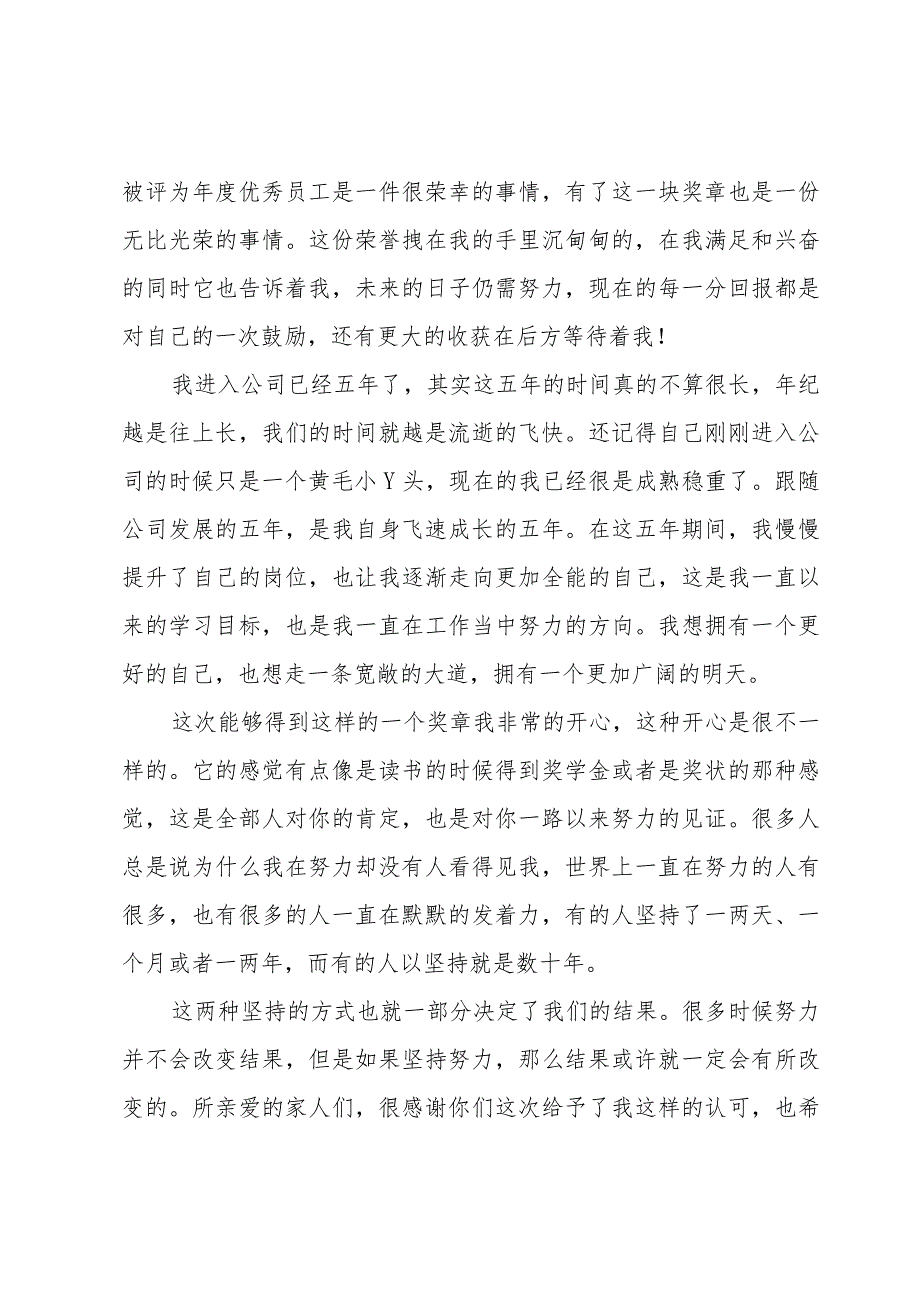 被评为年度优秀员工是一件很荣幸的事情，有了这一块奖章也是一份
无比光荣的事情。这份荣誉拽在我的手里沉甸甸的，在我满足和兴奋
的同时它也告诉着我，未来的日子仍需努力，现在的每一分回报都是
对自己的一次鼓励，还有更大的收获在后方等待着我！
我进入公司已经五年了，其实这五年的时间真的不算很长，年纪
越是往上长，我们的时间就越是流逝的飞快。还记得自己刚刚进入公
司的时候只是一个黄毛小Y头，现在的我已经很是成熟稳重了。跟随
公司发展的五年，是我自身飞速成长的五年。在这五年期间，我慢慢
提升了自己的岗位，也让我逐渐走向更加全能的自己，这是我一直以
来的学习目标，也是我一直在工作当中努力的方向。我想拥有一个更
好的自己，也想走一条宽敞的大道，拥有一个更加广阔的明天。
这次能够得到这样的一个奖章我非常的开心，这种开心是很不一
样的。它的感觉有点像是读书的时候得到奖学金或者是奖状的那种感
觉，这是全部人对你的肯定，也是对你一路以来努力的见证。很多人
总是说为什么我在努力却没有人看得见我，世界上一直在努力的人有
很多，也有很多的人一直在默默的发着力，有的人坚持了一两天、一
个月或者一两年，而有的人以坚持就是数十年。
这两种坚持的方式也就一部分决定了我们的结果。很多时候努力
并不会改变结果，但是如果坚持努力，那么结果或许就一定会有所改
变的。所亲爱的家人们，很感谢你们这次给予了我这样的认可，也希